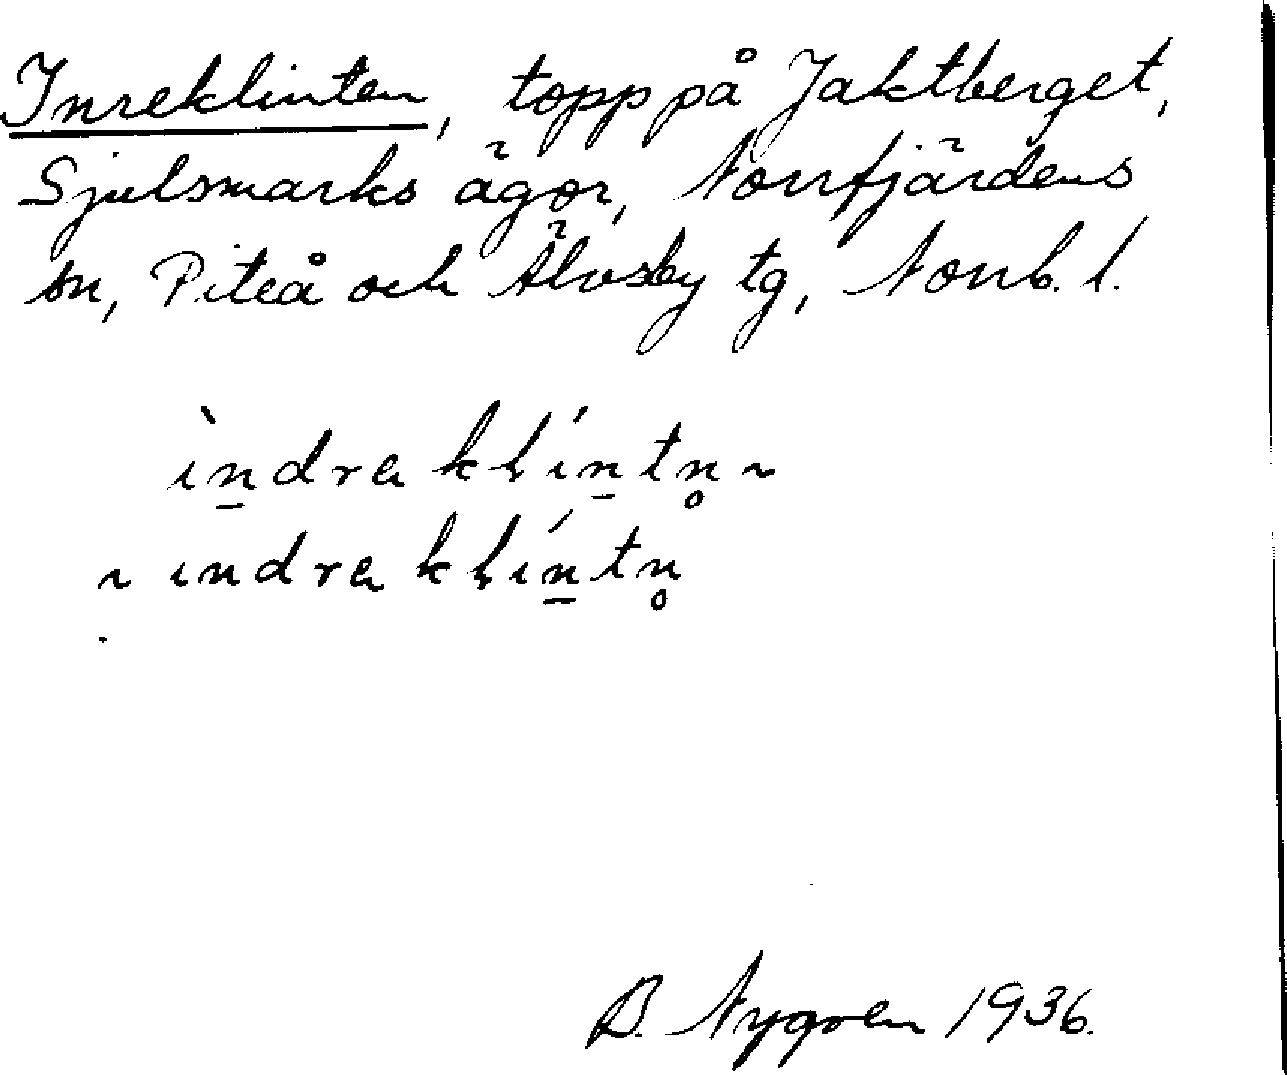 Inreklinten, topp på Jaktberget,
Sjulsmarks ägor, Norrfjärdens
sn, Piteå och Älvsby tg, Norrb. l.
ìn̲dra klín̲tn̥ ~
~ ındra klín̲tn̥
B. Nygren 1936.